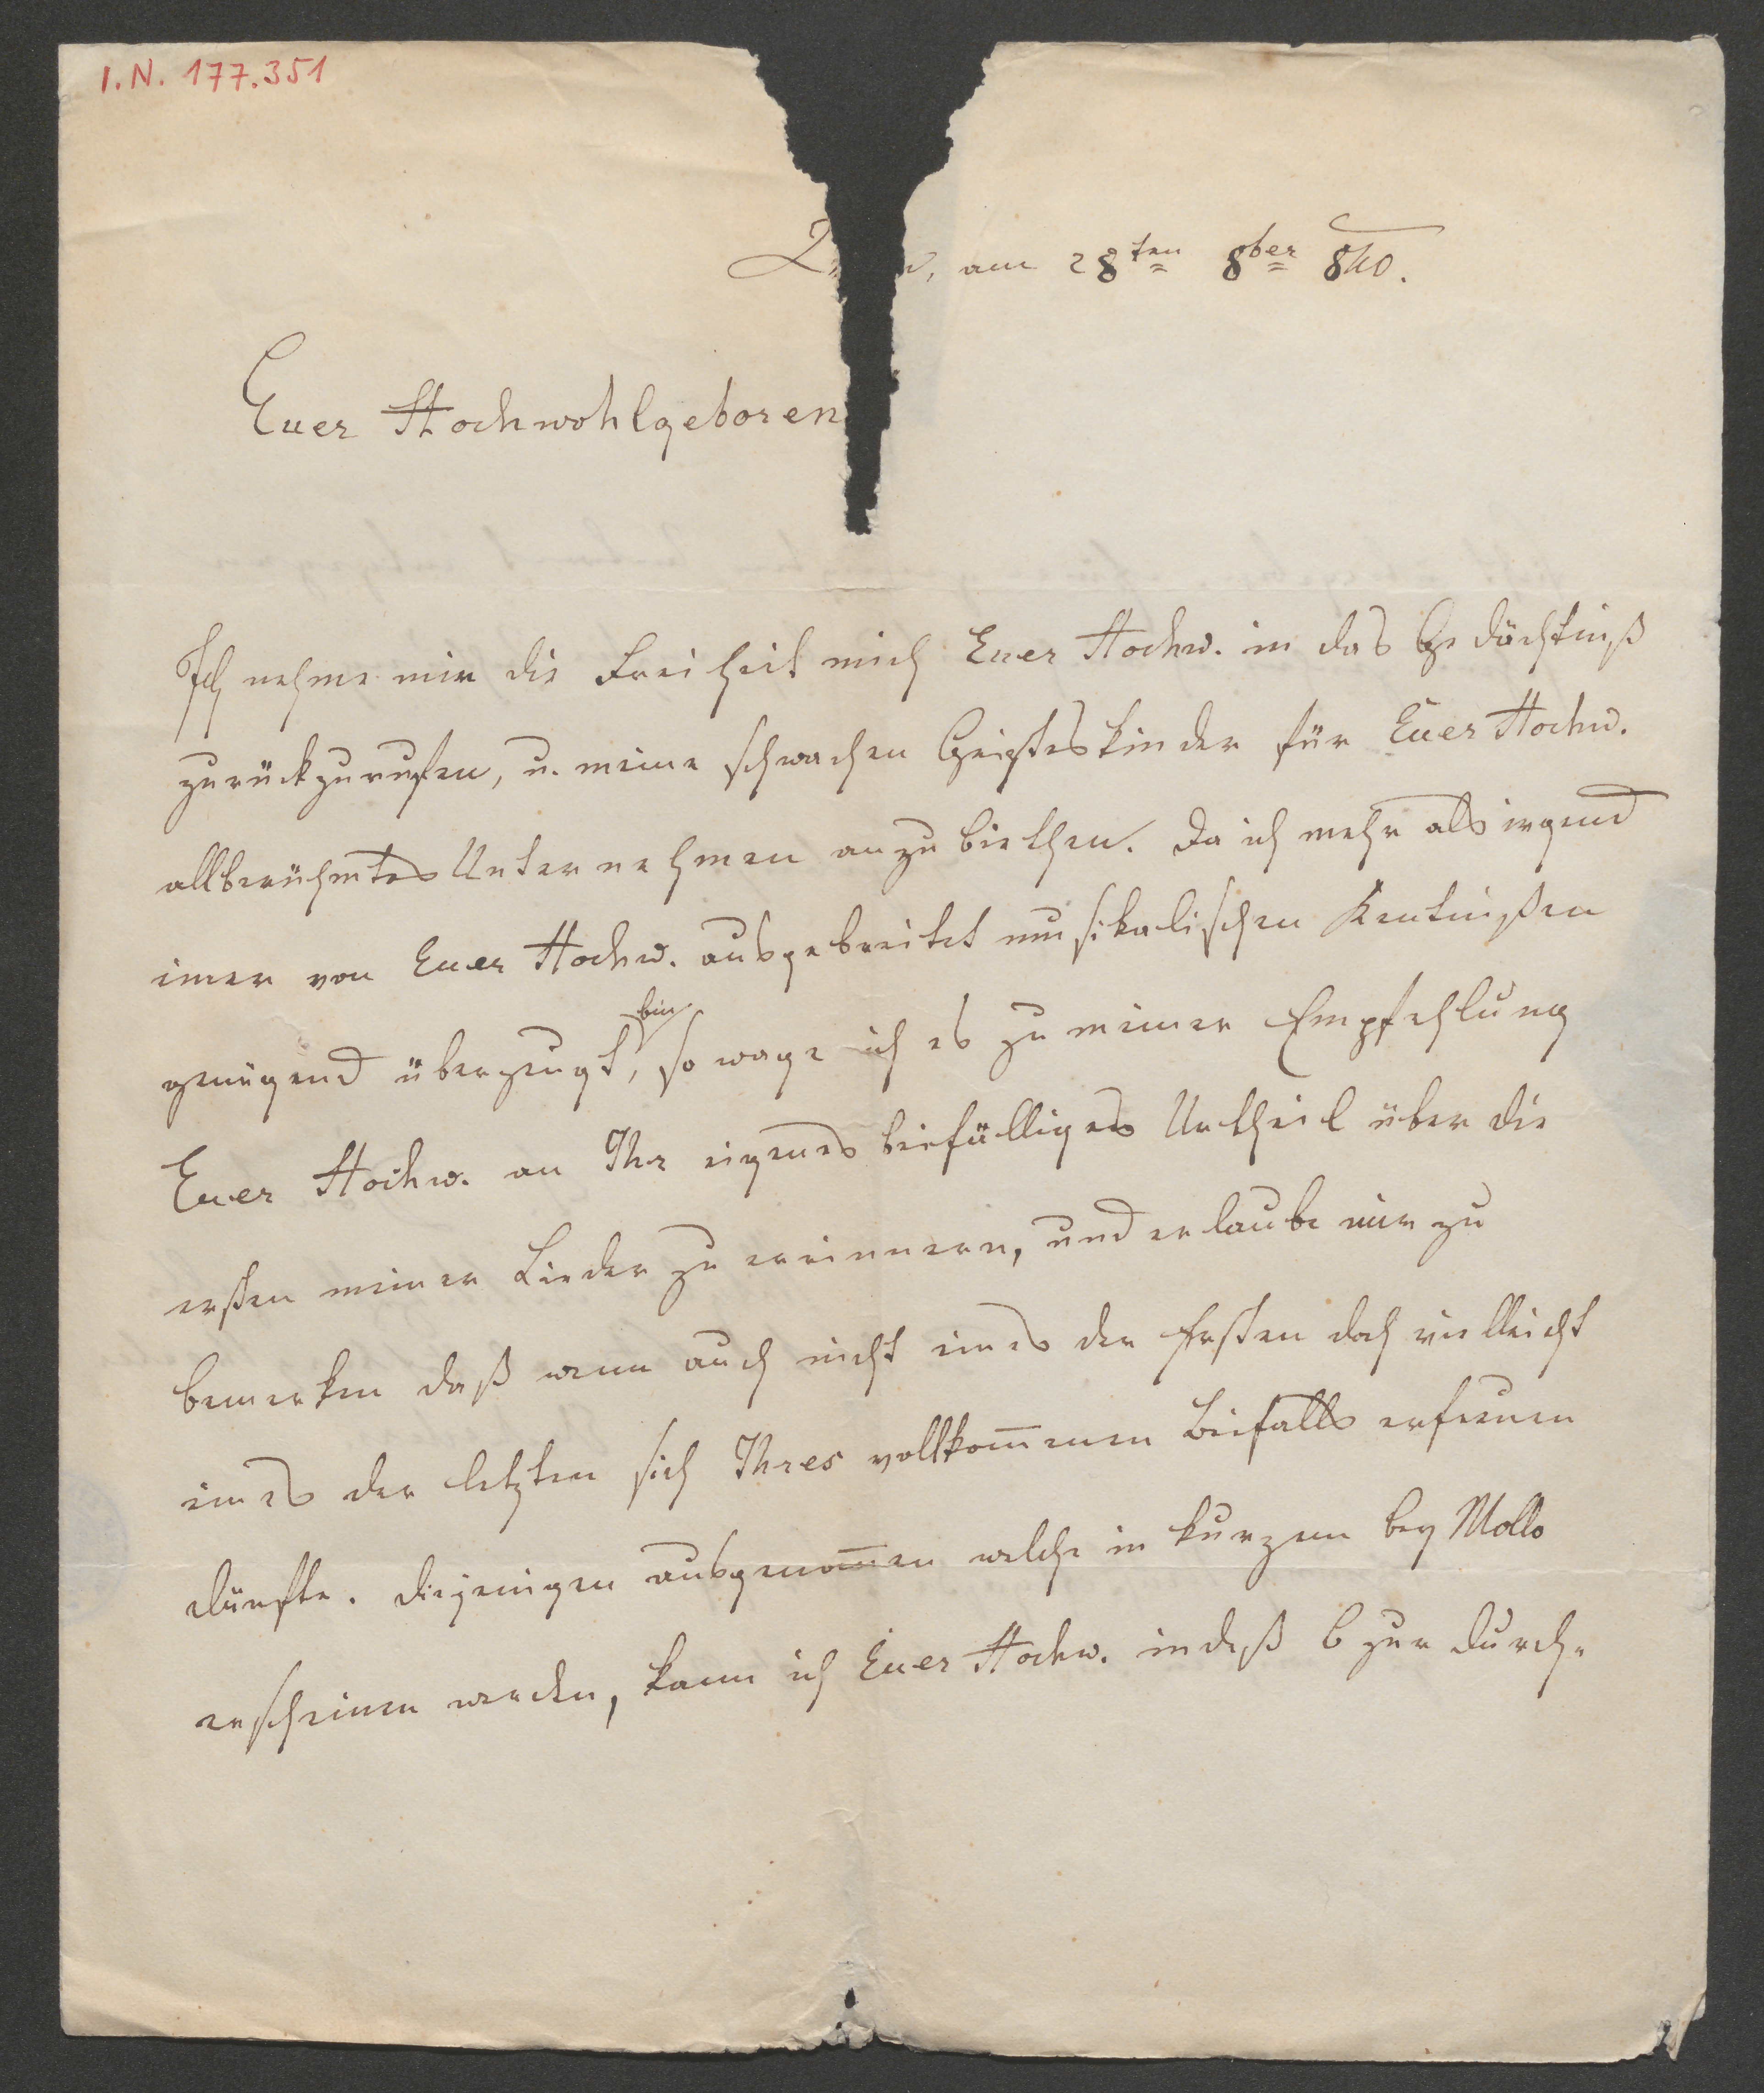 I.N. 177.351
am 28ten 8ber 840.
Euer Hochwohlgeboren
Ich nehme mir die Freiheit mich Euer Hochw. in das Gedächtniß
zurückzurufen, u. meine schwachen Geisteskinder für Euer Hochw.
allberühmtes Unternehmen anzubiethen. Da ich mehr als irgend
einer von Euer Hochw. ausgebreitet musikalischen Kentnißen
genügend überzeugt bin, so wage ich es zu meiner Empfehlung
Euer Hochw. an Ihr eigenes beifälliges Urtheil über die
ersten meiner Lieder zu erinnern, und erlaube mir zu
bemerken daß wenn auch nicht eines der Ersten doch vielleicht
eines der letzten sich Ihres vollkom̅enen Beifalls erfreuen
dürfte. Diejenigen ausgenom̅en welche in kurzem bey Mollo
erscheinen werden, kann ich Euer Hochw. indeß 6 zur Durch-